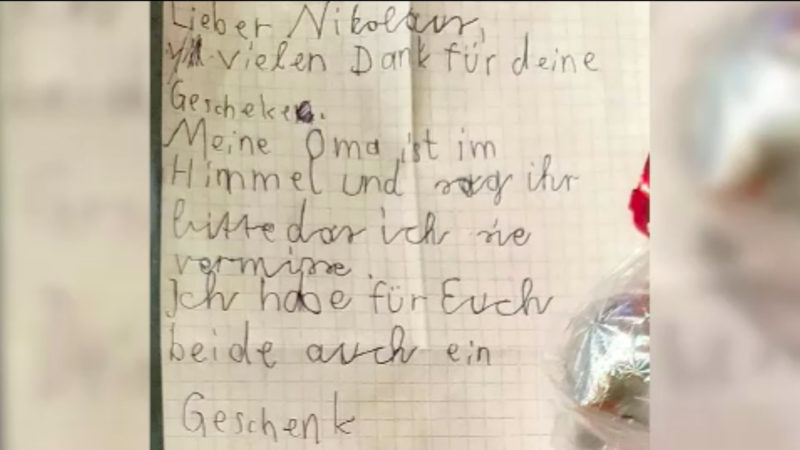 Lieber Nikolaus,
vielen Dank für deine
Gescheke.
Meine Oma ist im
Himmel und sag ihr
bitte das ich sie
vermisse.
Ich habe für Euch
beide auch ein
Geschenk